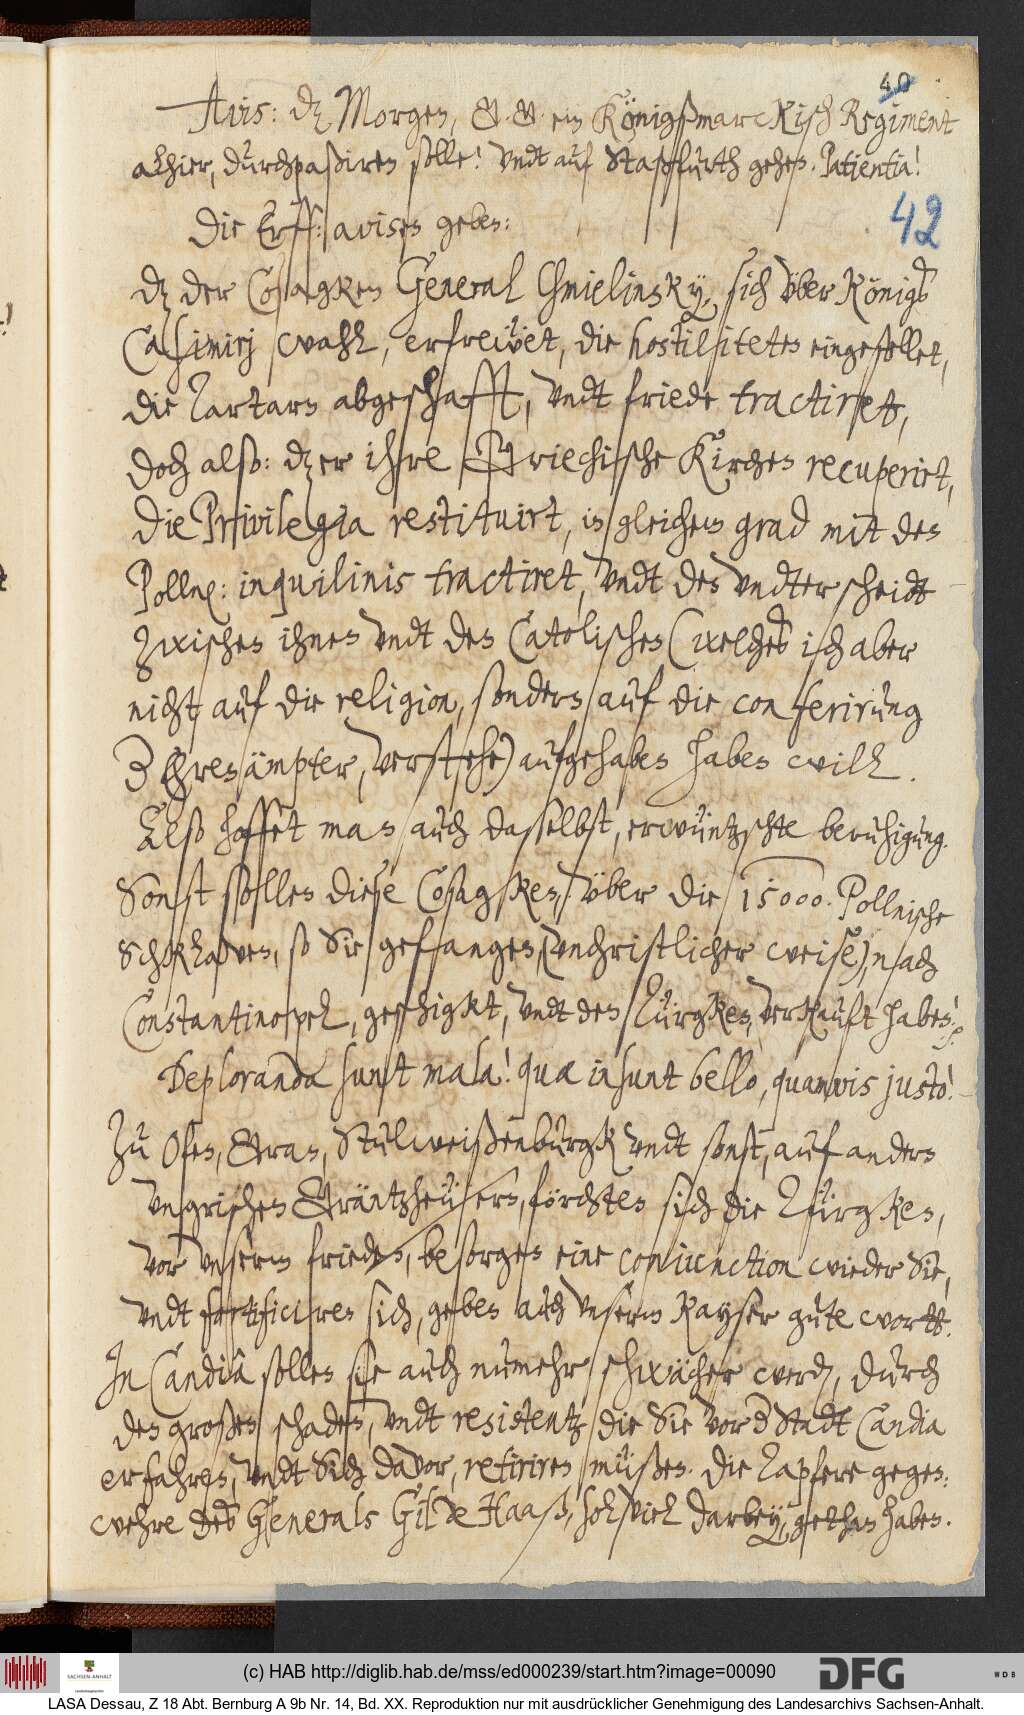 40
Avis: dz Morgen, &. &. ein Königßmarckisch Regiment
alhier, durchpaßiren solle! undt auf Staßfurth gehen. Patientia!
42
Die Erff: avisen geben:
dz der Cosagken General Chmielinsky, sich über Königs
Casimirj wahl, erfrewet, die hostiliteten eingestellet,
die Tartarn abgeschafft, undt friede tractiret,
doch also: dz er ihre Griechische Kirchen recuperirt,
die Privilegia restituirt, in gleichem grad mit den
Polln: inquilinis tractiret, undt den undterscheidt
zwischen ihnen undt den Catolischen (welches ich aber
nicht auf die religion, sondern auf die conferirung
d Ehrenämpter, verstehe) aufgehaben haben will.
Also hoffet man auch daselbst, erwüntzschte beruhigung.
Sonst sollen diese Cosagken, über die 15000. Pollnische
Schklaven, so Sie gefangen, (unchristlicher weise), nach
Constantinopel, geschigkt, undt den Türgken, verkauft haben. /.
Deploranda sunt mala! quæ insunt bello, quamvis justo!
Zu Ofen, Gran, Stulweißenburgk undt sonst, auf andern
ungrischen Gräntzheüsern, förchten sich die Türgken,
vor unserm frieden, besorgen eine coniunction wieder Sie,
undt fortificiren sich, geben auch unserm Kayser gute wortt.
In Candia sollen sie auch numehr schwächer werd, durch
den großen schaden, undt resistentz die Sie vor d Stadt Candia
erfahren, undt Sich davor, retiriren müßen. Die Tapfere gegen:
wehre des Generals Gil de Haaß, sol viel darbey, gethan haben.
(c) HAB http://diglib.hab.de/mss/ed000239/start.htm?image=00090
SACHSEN-ANHALT
DFG
WDB
LASA Dessau, Z 18 Abt. Bernburg A 9b Nr. 14, Bd. XX. Reproduktion nur mit ausdrücklicher Genehmigung des Landesarchivs Sachsen-Anhalt.